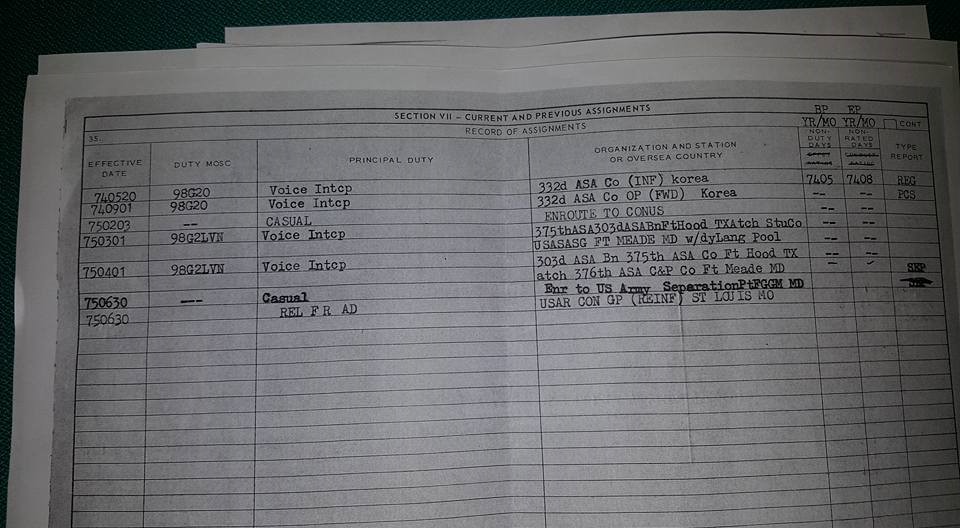 SECTION VII – CURRENT AND PREVIOUS ASSIGNMENTS
35. RECORD OF ASSIGNMENTS
BP EP
YR/MO YR/MO CONT
EFFECTIVE DATE DUTY MOSC PRINCIPAL DUTY ORGANIZATION AND STATION OR OVERSEA COUNTRY NON-DUTY DAYS NON-RATED DAYS TYPE REPORT
740520 98G20 Voice Intcp 332d ASA Co (INF) korea 7405 7408 REG
740901 98G20 Voice Intcp 332d ASA Co OP (FWD) Korea -- -- PCS
750203 -- CASUAL ENROUTE TO CONUS -- --
750301 98G2LVN Voice Intcp 375thASA303dASABnFtHood TXAtch StuCo -- --
USASASG FT MEADE MD w/dyLang Pool -- --
303d ASA Bn 375th ASA Co Ft Hood TX -- --
750401 98G2LVN Voice Intcp atch 376th ASA C&P Co Ft Meade MD SEP
750630 --- Casual Enr to US Army SeparationPtFGGM MD
750630 REL F R AD USAR CON GP (REINF) ST LOUIS MO